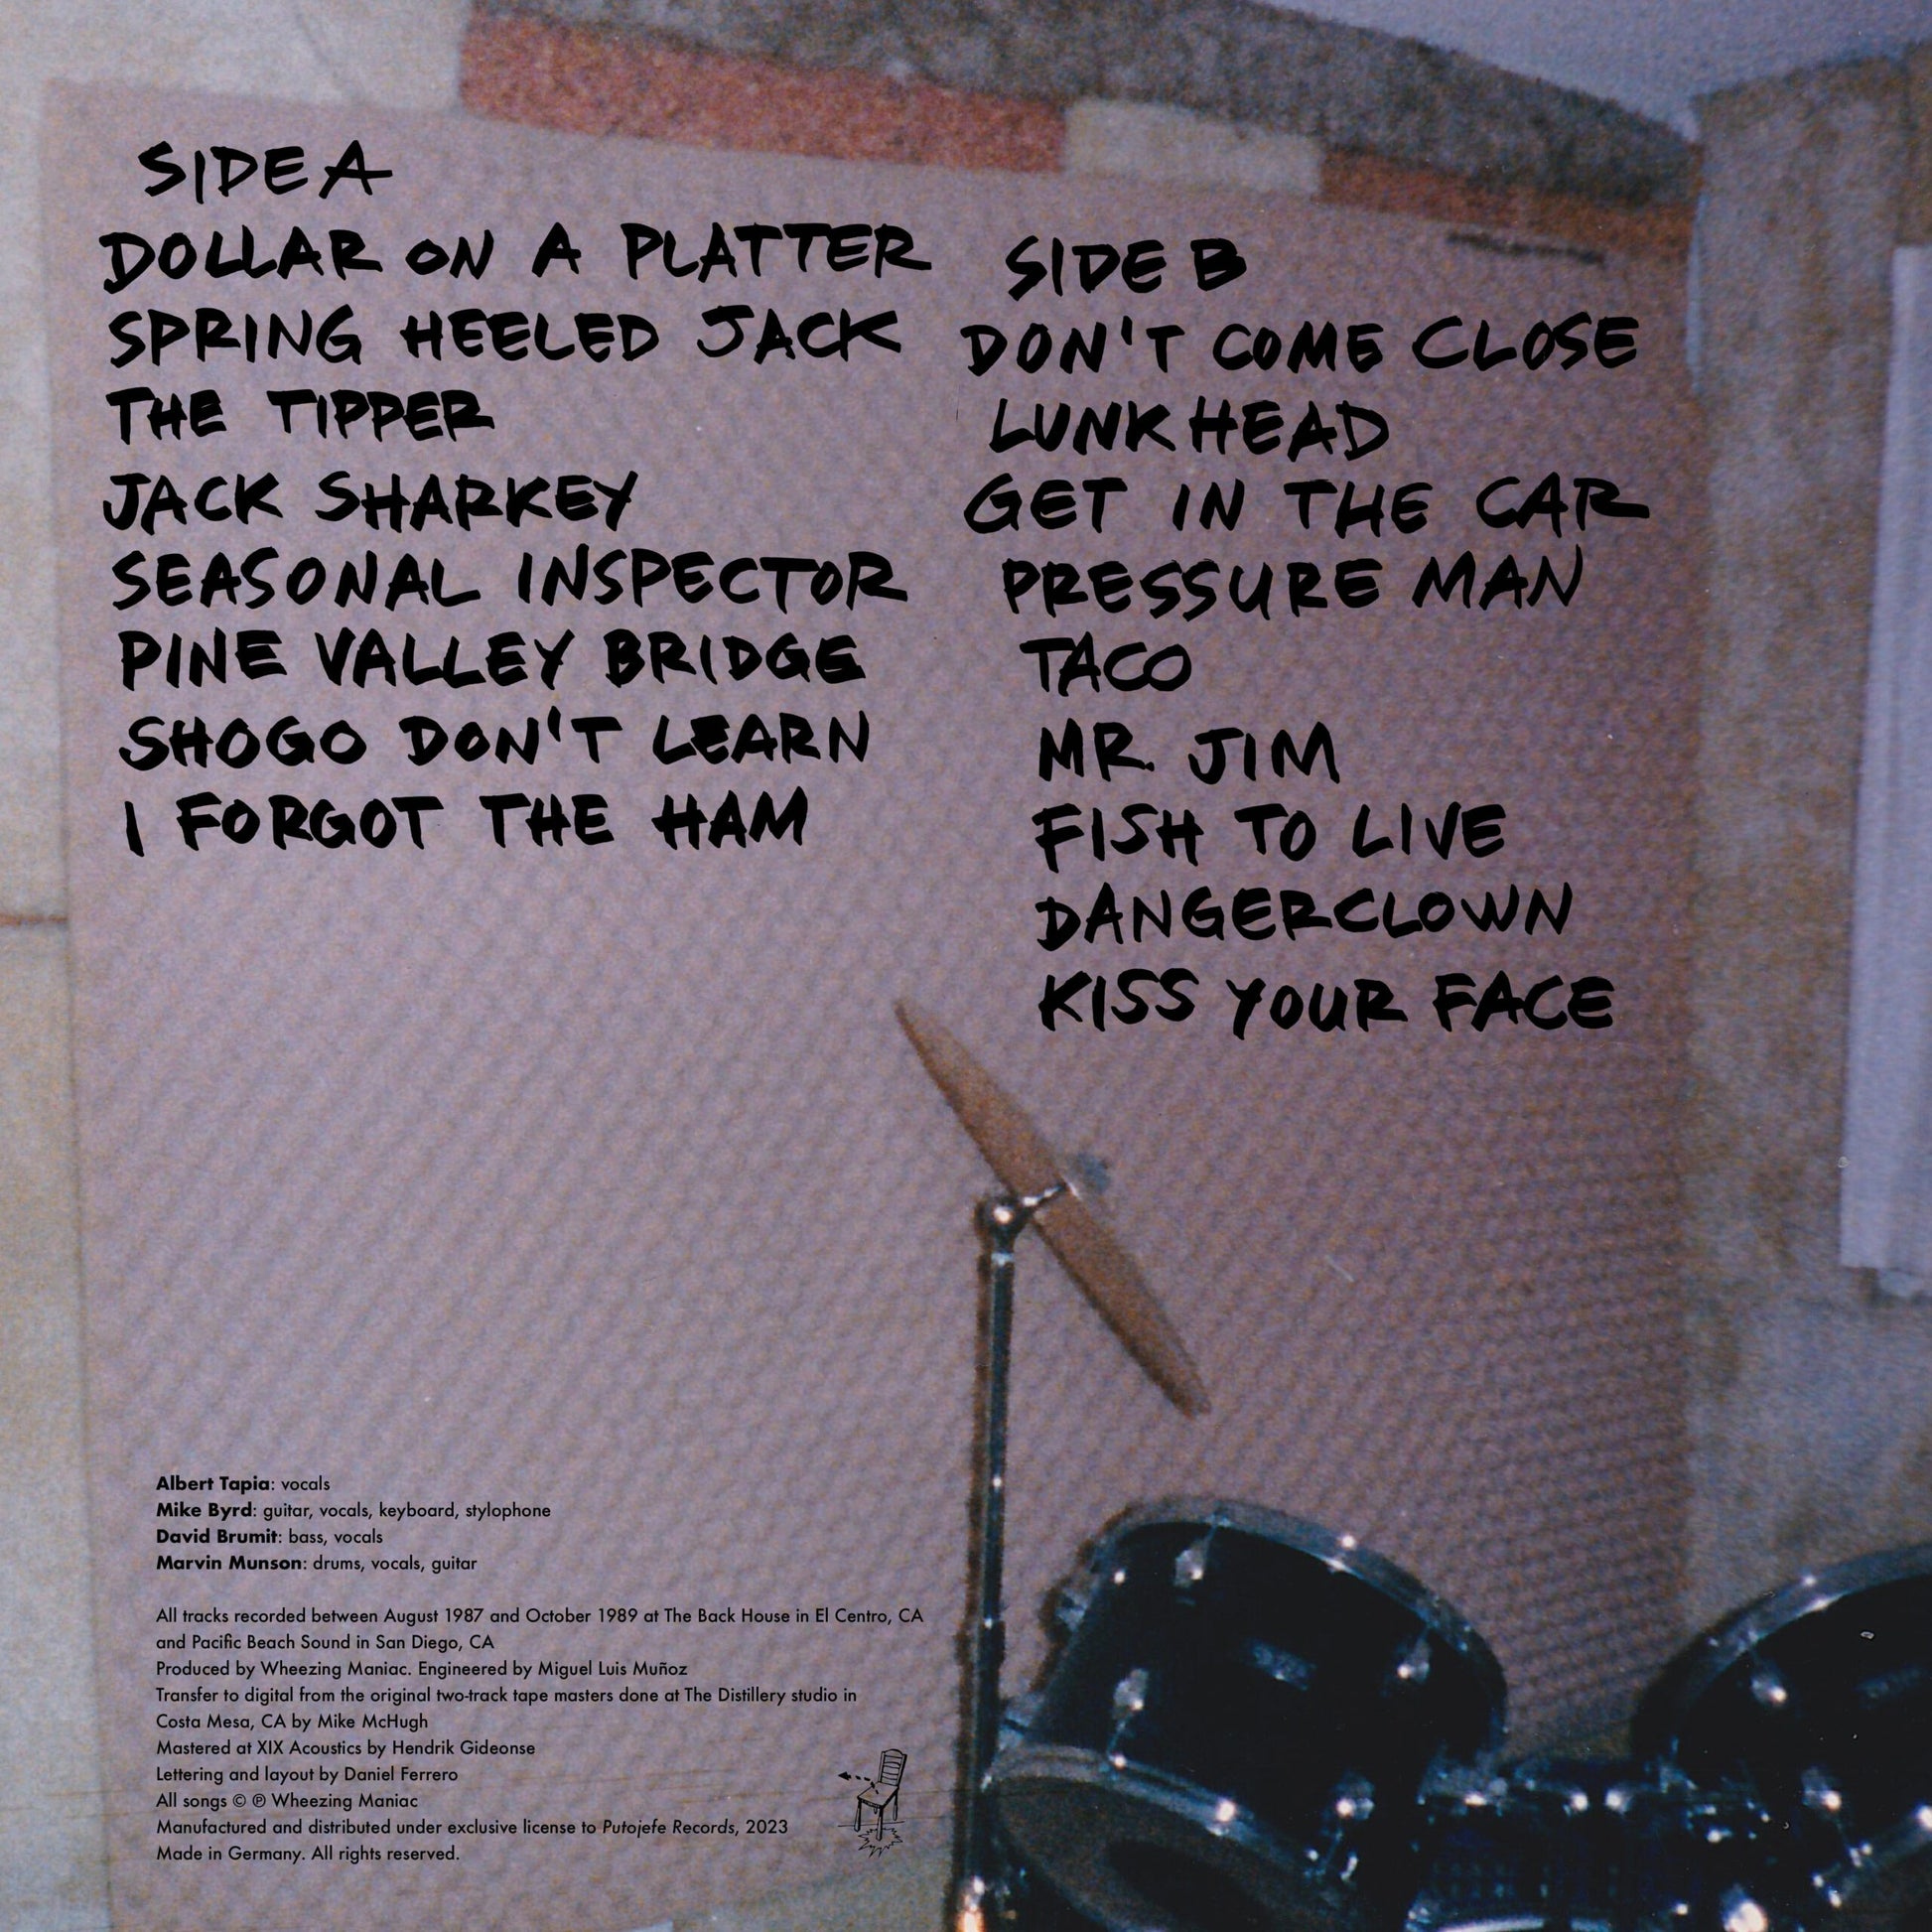 SIDE A
DOLLAR ON A PLATTER
SPRING HEELED JACK
THE TIPPER
JACK SHARKEY
SEASONAL INSPECTOR
PINE VALLEY BRIDGE
SHOGO DON'T LEARN
I FORGOT THE HAM
SIDE B
DON'T COME CLOSE
LUNKHEAD
GET IN THE CAR
PRESSURE MAN
TACO
MR. JIM
FISH TO LIVE
DANGERCLOWN
KISS YOUR FACE
Albert Tapia: vocals
Mike Byrd: guitar, vocals, keyboard, stylophone
David Brumit: bass, vocals
Marvin Munson: drums, vocals, guitar
All tracks recorded between August 1987 and October 1989 at The Back House in El Centro, CA
and Pacific Beach Sound in San Diego, CA
Produced by Wheezing Maniac. Engineered by Miguel Luis Muñoz
Transfer to digital from the original two-track tape masters done at The Distillery studio in
Costa Mesa, CA by Mike McHugh
Mastered at XIX Acoustics by Hendrik Gideonse
Lettering and layout by Daniel Ferrero
All songs © ℗ Wheezing Maniac
Manufactured and distributed under exclusive license to Putojefe Records, 2023
Made in Germany. All rights reserved.